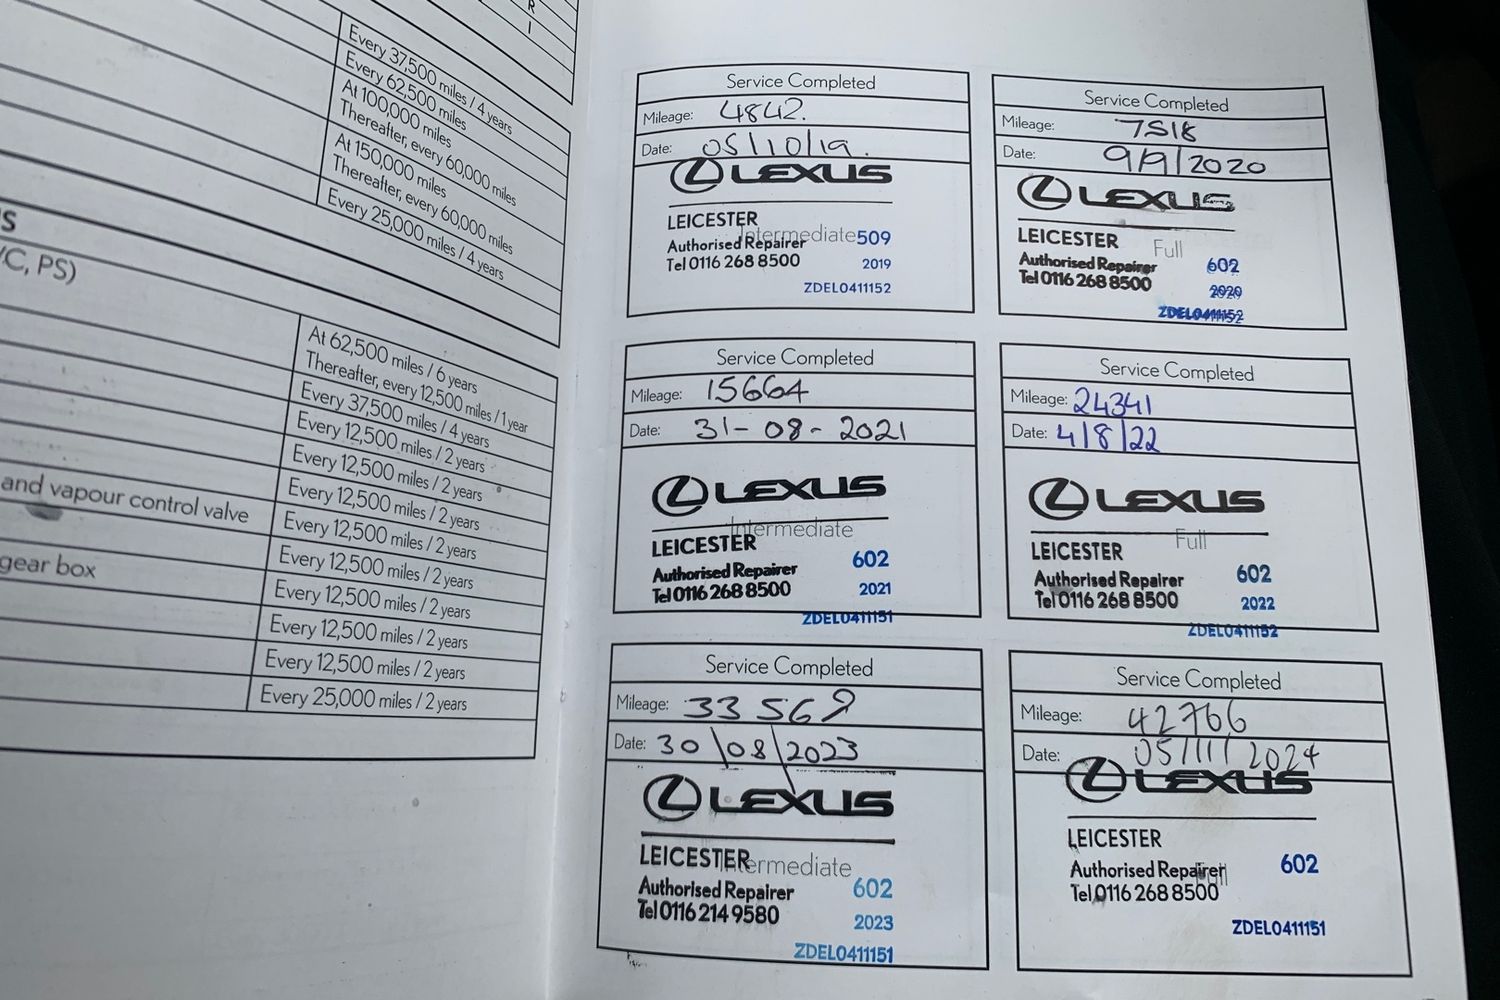 R
I
Every 37,500 miles / 4 years
Every 62,500 miles
At 100,000 miles
Thereafter, every 60,000 miles
At 150,000 miles
Thereafter, every 60,000 miles
Every 25,000 miles / 4 years
S
/C, PS)
At 62,500 miles / 6 years
Thereafter, every 12,500 miles / 1 year
Every 37,500 miles / 4 years
Every 12,500 miles / 2 years
Every 12,500 miles / 2 years
Every 12,500 miles / 2 years
and vapour control valve
Every 12,500 miles / 2 years
Every 12,500 miles / 2 years
gear box
Every 12,500 miles / 2 years
Every 12,500 miles / 2 years
Every 12,500 miles / 2 years
Every 25,000 miles / 2 years
Service Completed
Mileage: 4842.
Date: 05/10/19.
LEXUS
LEICESTER
Intermediate 509
Authorised Repairer
Tel 0116 268 8500
2019
ZDEL0411152
Service Completed
Mileage: 7518
Date: 9/9/2020
LEXUS
LEICESTER
Full
Authorised Repairer
602
Tel 0116 268 8500
2020
ZDEL0411152
Service Completed
Mileage: 15664
Date: 31-08-2021
LEXUS
Intermediate
LEICESTER
602
Authorised Repairer
Tel 0116 268 8500
2021
ZDEL0411151
Service Completed
Mileage: 24341
Date: 4/8/22
LEXUS
Full
LEICESTER
Authorised Repairer
602
Tel 0116 268 8500
2022
ZDEL0411152
Service Completed
Mileage: 33569
Date: 30/08/2023
LEXUS
LEICESTER
Intermediate
Authorised Repairer
602
Tel 0116 214 9580
2023
ZDEL0411151
Service Completed
Mileage: 42766
Date: 05/11/2024
LEXUS
LEICESTER
Authorised Repairer
Full
602
Tel 0116 268 8500
ZDEL0411151